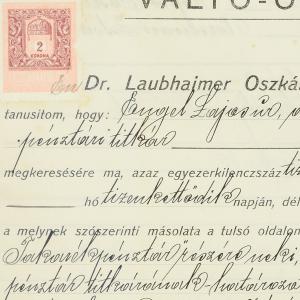 VÁLTÓ-Ó
2
KORONA
Én Dr. Laubhajmer Oszká
tanusitom, hogy: Engel Lajos úr, a
pénztári titkár
megkeresésére ma, azaz egyezerkilencszáz tiz
hó tizenkettődik napján, dél
a melynek szószerinti másolata a tulsó oldalon
Takarékpénztár részére neki,
pénztár titkárának határozo